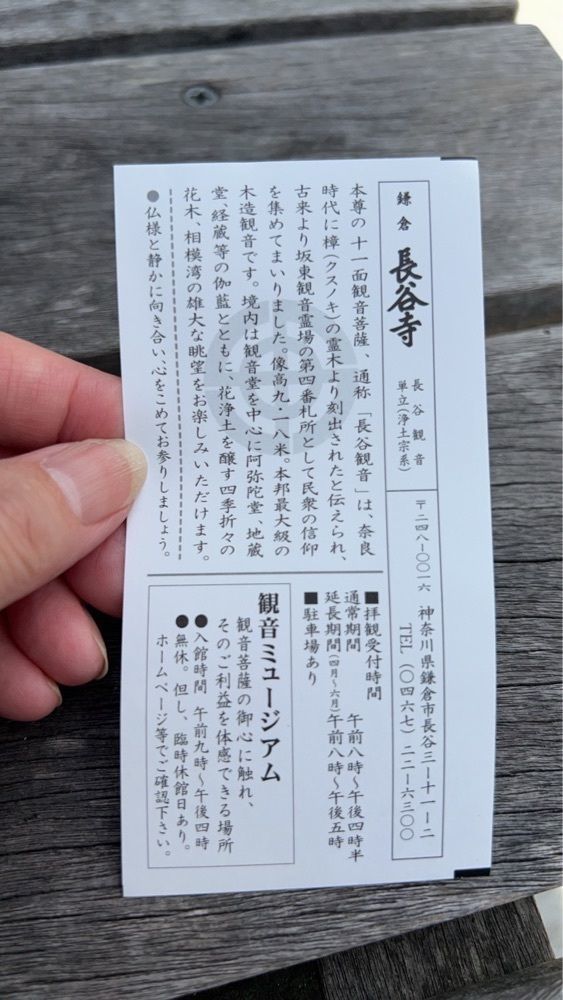 鎌倉 長谷寺
長谷観音
単立(浄土宗系)
〒二四八-〇〇一六 神奈川県鎌倉市長谷三-十一-二
TEL (〇四六七) 二二-六三〇〇
本尊の十一面観音菩薩、通称「長谷観音」は、奈良
時代に樟(クスノキ)の霊木より刻出されたと伝えられ、
古来より坂東観音霊場の第四番札所として民衆の信仰
を集めてまいりました。像高九・一八米。本邦最大級の
木造観音です。境内は観音堂を中心に阿弥陀堂、地蔵
堂、経蔵等の伽藍とともに、花浄土を醸す四季折々の
花木、相模湾の雄大な眺望をお楽しみいただけます。
●仏様と静かに向き合い、心をこめてお参りしましょう。
■拝観受付時間
通常期間 午前八時〜午後四時半
延長期間(四月〜六月)午前八時〜午後五時
■駐車場あり
観音ミュージアム
観音菩薩の御心に触れ、
そのご利益を体感できる場所
●入館時間 午前九時〜午後四時
●無休。但し、臨時休館日あり。
ホームページ等でご確認下さい。